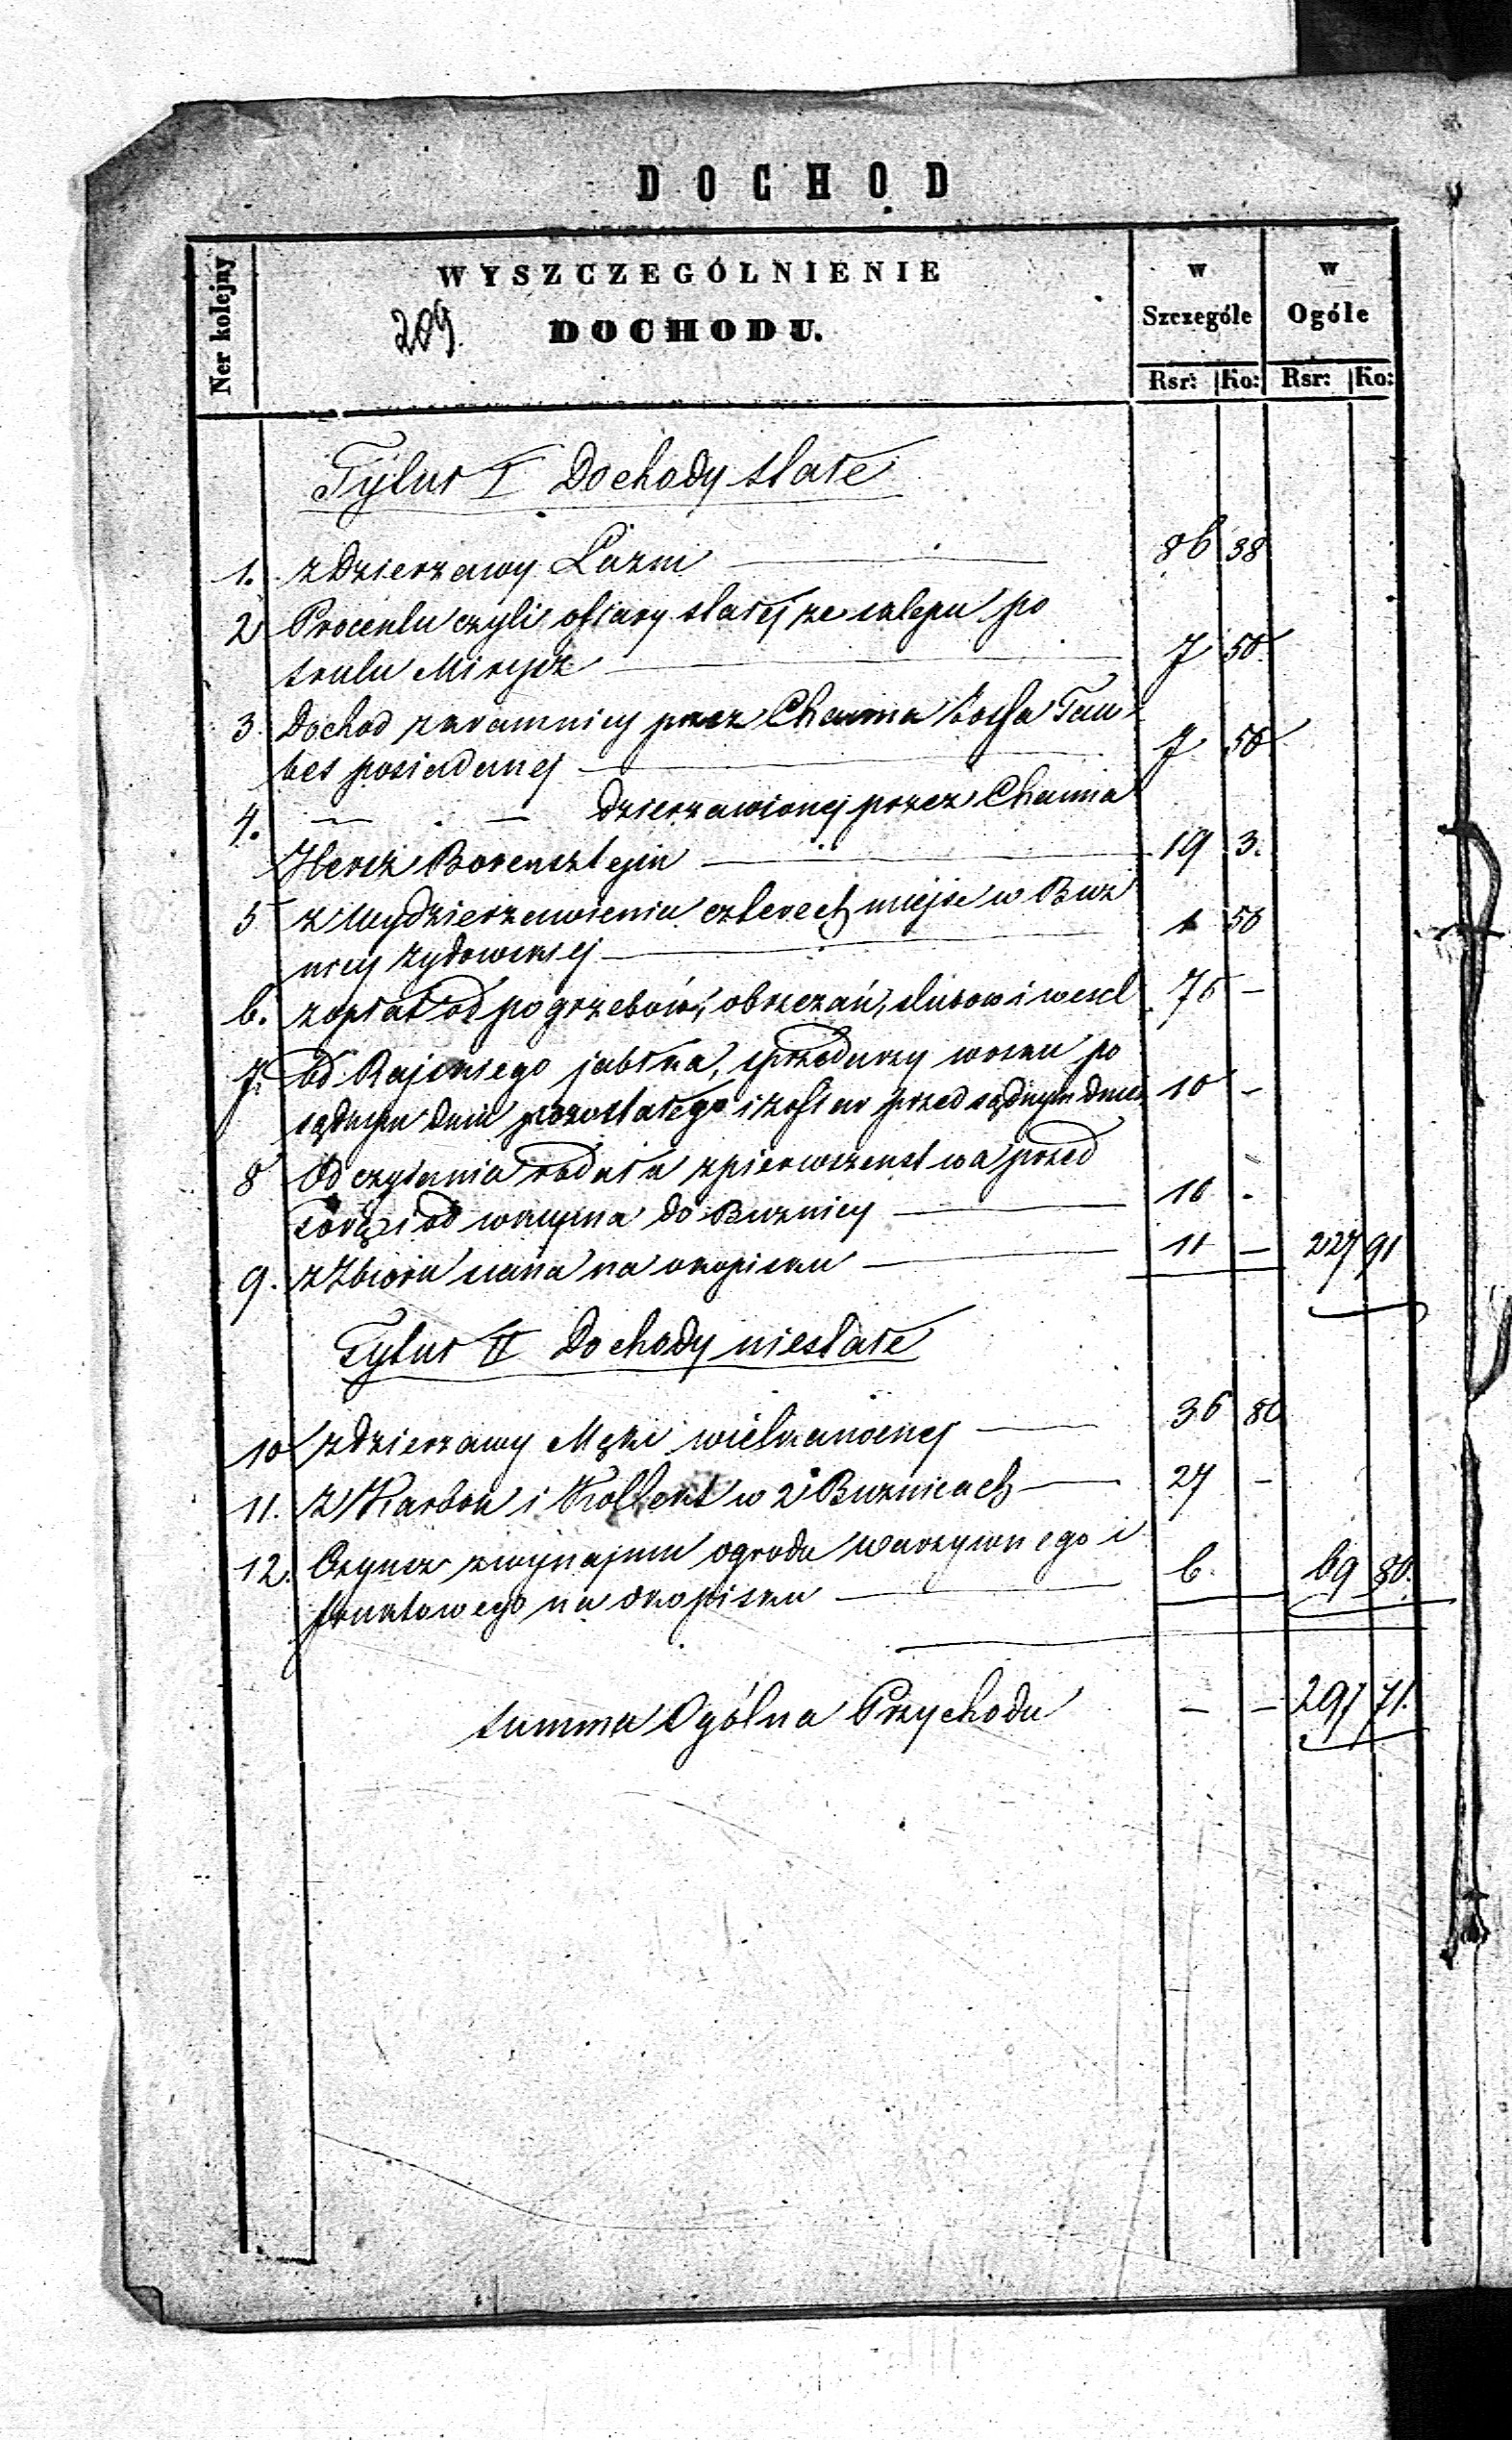 DOCHOD
Ner kolejny
WYSZCZEGÓLNIENIE
DOCHODU.
209.
w Szczególe
w Ogóle
Rsr: Ko: Rsr: Ko:
Tytuł I Dochody stałe
1. z Dzierzawy Łazni 86 38
2 Procentu czyli ofiary stałej ze sklepu po
Srulu 7 50
3. Dochod z kramnicy przez Chaima Tau
bes posiadanej 7 50
4. — . — Dzierzawionej przez Chaima
Hersz Borensztejn 19 3.
5 z Wydzierzawienia czterech miejsc w Buz
nicy zydowskiej 1 50
6. z opłat od pogrzebów, obrzezań, slubow i wesel 75 –
7. od Rajskiego jabłka, sprzedarzy wosku po
sądnym dniu pozostałego i przed sądnym dniem 10 –
8 Od czytania rodału z pierwszenstwa przed
Torą i od do Buznicy 10 -
9. z Zbioru siana na okopisku 11 — 227 91
Tytuł II Dochody niestałe
10 z dzierzawy Mąki wielkanocnej 36 80
11. z Karbon i Kollekt w 2 Buznicach 27 –
12. Czynsz z wynajmu ogrodu warzywnego i
fruktowego na okopisku 6. 69 80.
Summa Ogólna Przychodu — — 297 71.